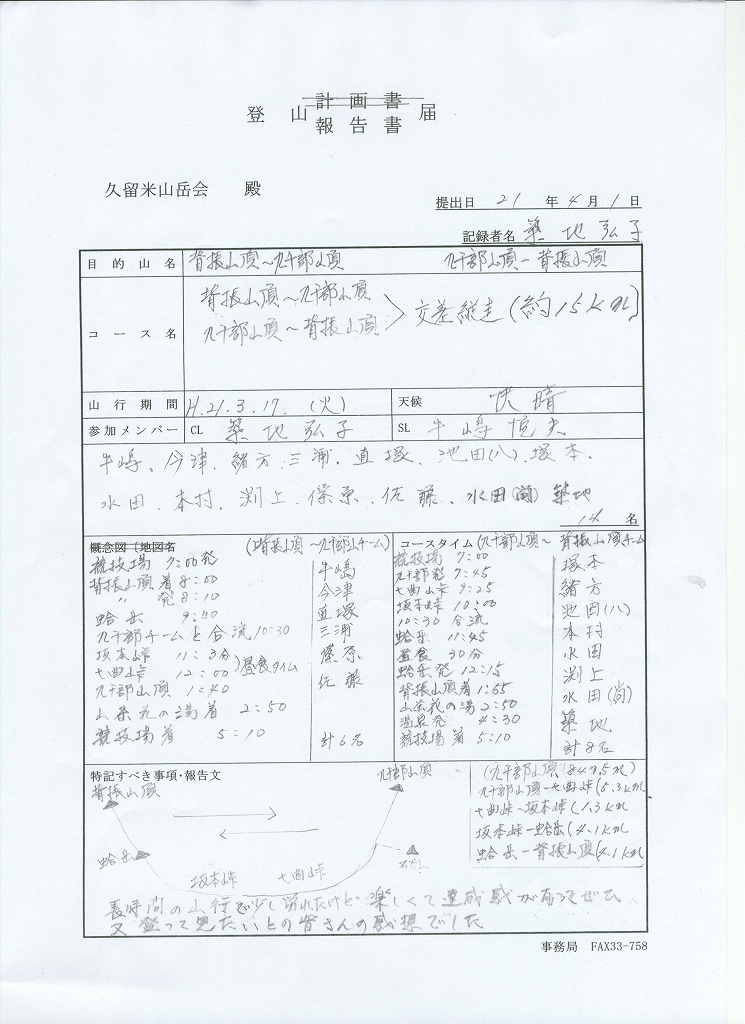 登山計画書届
報告書
久留米山岳会 殿
提出日 21 年 4 月 1 日
記録者名 築地弘子
目的山名 背振山頂〜九千部山頂 九千部山頂ー背振山頂
コース名
背振山頂〜九千部山頂
九千部山頂〜背振山頂
交差縦走(約15km)
山行期間 H.21.3.17.(火) 天候 快晴
参加メンバー CL 築地弘子 SL 牛嶋恒夫
牛嶋、今津、緒方、三浦、直塚、池田(八)、塚本、
水田、本村、渕上、篠原、佐藤、水田(尚) 築地
14 名
概念図(地図名 (背振山頂〜九千部山チーム)
競技場 7:00発
背振山頂 着 8:00
〃 発 8:10
蛤岳 9:00
九千部チームと合流10:30
坂本峠 11:3分
七曲峠 12:00 )昼食タイム
九千部山頂 1:40
山茶花の湯着 2:50
競技場着 5:10
牛嶋
今津
直塚
三浦
篠原
佐藤
計6名
コースタイム(九千部山頂〜背振山頂チーム
競技場 7:00
九千部発 7:45
七曲山峠 9:25
坂本峠 10:00
10:30 合流
蛤岳 11:45
昼食 30分
蛤岳発 12:15
背振山頂着 1:55
山茶花の湯 2:50
温泉発 4:30
競技場着 5:10
塚本
緒方
池田(八)
本村
水田
渕上
水田(尚)
築地
計8名
特記すべき事項・報告文
背振山頂
九千部山頂
蛤岳
坂本峠
七曲峠
(九千部山頂 847.5m)
九千部山頂ー七曲峠(5.3km
七曲峠〜坂本峠(1.3km
坂本峠ー蛤岳(4.1km
蛤岳ー背振山頂(4.1km
長時間の山行で少し疲れたけど楽しくて達成感が有ってぜひ
又登って見たいとの皆さんの感想でした
事務局 FAX33-758